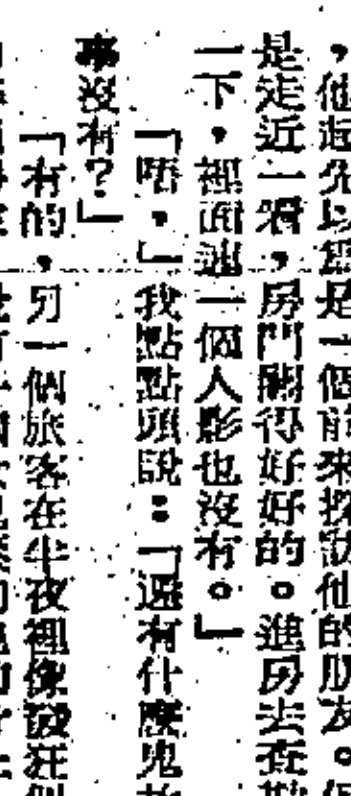 ，他起先以爲是一個前來探訪他的朋友。但
是走近一看，房門關得好好的。進房去查勘
一下，裡面連一個人影也沒有。」
「唔，」我點點頭說：「還有什麼鬼故
事沒有？」
「有的，另一個旅客在半夜裡像發狂似